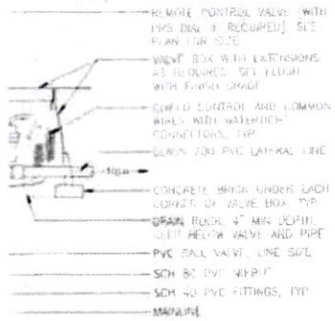 REMOTE CONTROL VALVE (WITH
PRS DIAL IF REQUIRED) SEE
PLAN FOR SIZE
VALVE BOX WITH EXTENSIONS
AS REQUIRED. SET FLUSH
WITH FINISH GRADE
CONTROL AND COMMON
WIRES WITH WATERTIGHT
CONNECTORS, TYP
CLASS 200 PVC LATERAL LINE
CONCRETE BRICK UNDER EACH
CORNER OF VALVE BOX, TYP
DRAIN ROCK, 4" MIN DEPTH,
BELOW VALVE AND PIPE
PVC BALL VALVE, LINE SIZE
SCH 80 PVC NIPPLE
SCH 40 PVC FITTINGS, TYP
MAINLINE